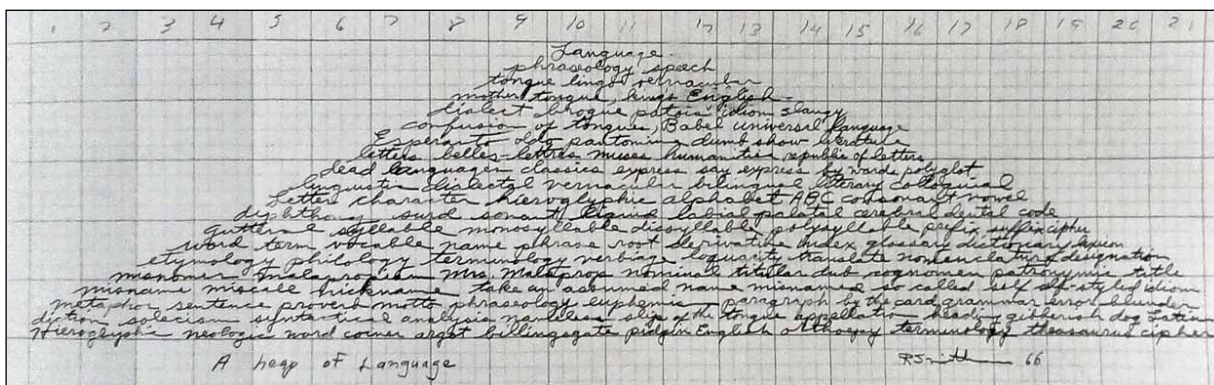 1 2 3 4 5 6 7 8 9 10 11 12 13 14 15 16 17 18 19 20 21
Language
phraseology speech
tongue lingo vernacular
mother tongue, king's English
dialect brogue patois idiom slangy
confusion of tongues, Babel universal language
Esperanto Ido pantomime dumb show literature
letters belles-lettres muses humanities republic of letters
dead languages classics express say express by words polyglot
linguistic dialectal vernacular bilingual literary colloquial
letter character hieroglyphic alphabet ABC consonant vowel
diphthong surd sonant liquid labial palatal cerebral dental code
guttural syllable monosyllable dissyllable polysyllable prefix suffix cipher
word term vocable name phrase root derivative index glossary dictionary lexicon
etymology philology terminology verbiage loquacity translate nomenclature designation
misnomer malapropism Mrs. Malaprop nominal titular dub cognomen patronymic title
misname miscall nickname take an assumed name misnamed so called self-styled idiom
metaphor sentence proverb motto phraseology euphemism paragraph by the card grammar error blunder
diction solecism syntactical analysis nameless slip of the tongue appellation heading gibberish dog Latin
Hieroglyphic neologic word coiner argot billingsgate pidgin English orthoepy terminology thesaurus cipher
A heap of Language
RSmith 66